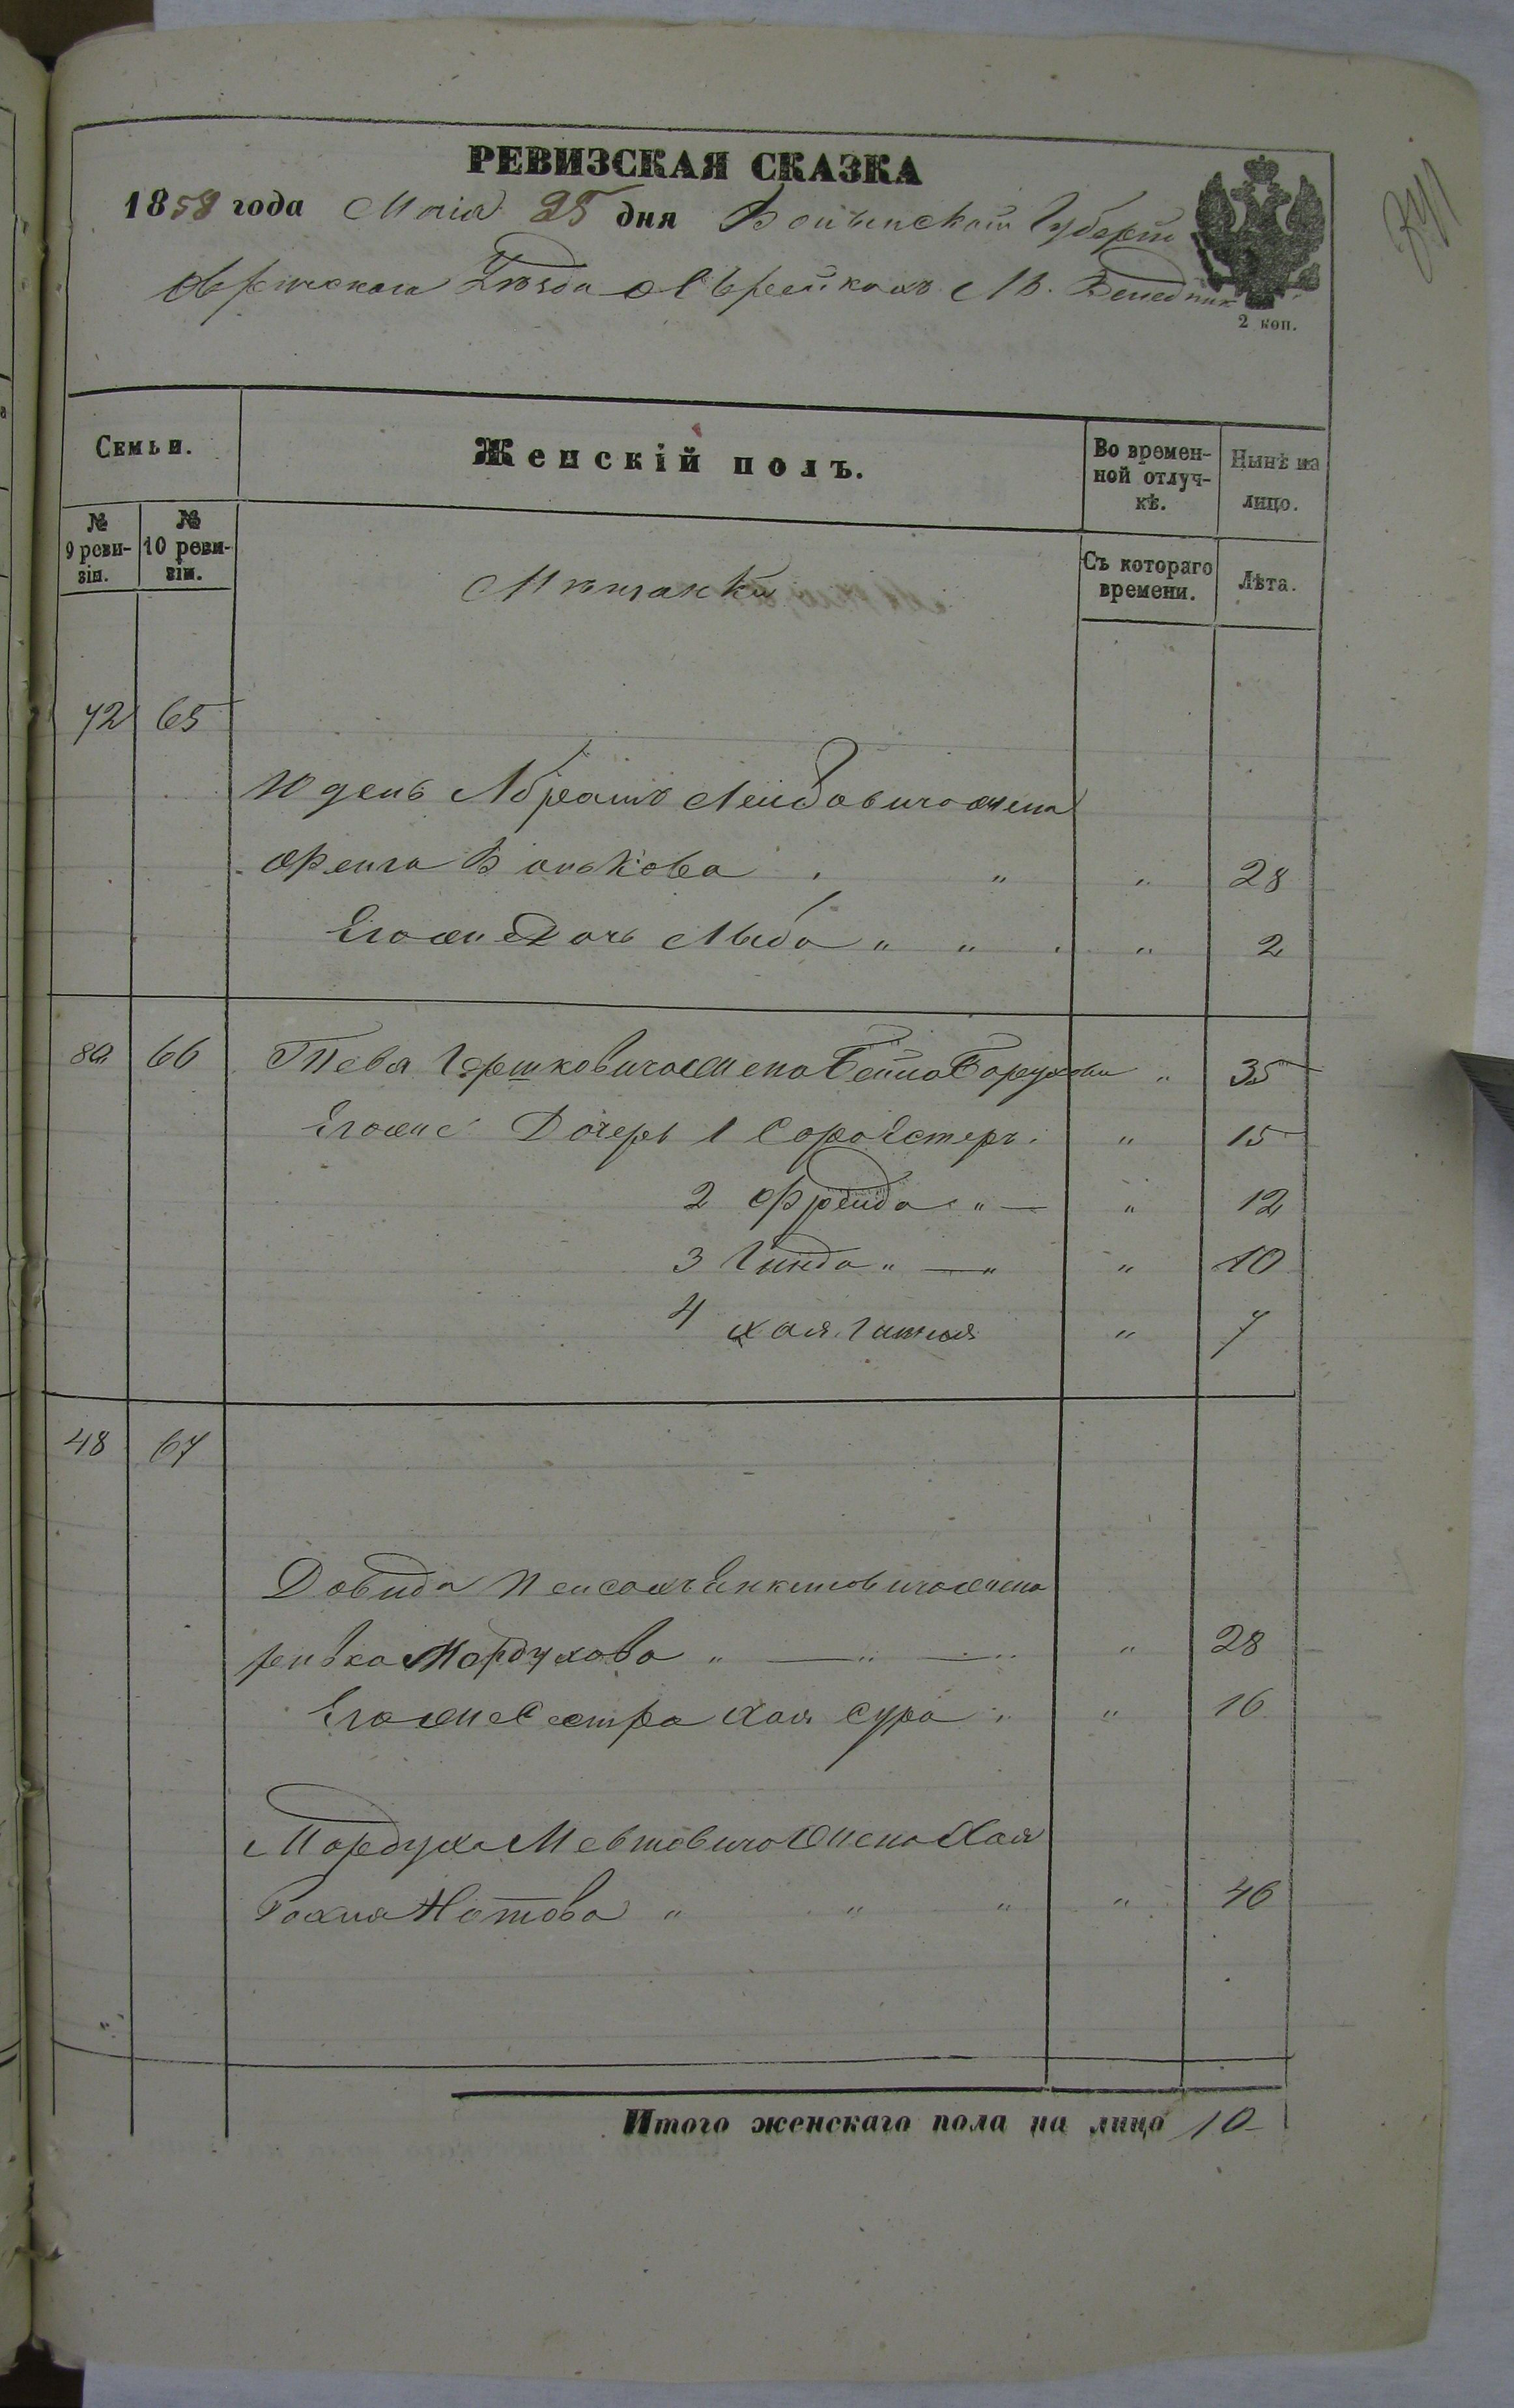 РЕВИЗСКАЯ СКАЗКА
1858 года Маія 25 дня Волынской Губерни
Овручскаго Уѣзда о Еврейкахъ М.
2 коп.
Семьи.
Женскій полъ.
Во времен-
ной отлуч-
кѣ.
Нынѣ на
лицо.
№
9 реви-
зіи.
№
10 реви-
зіи.
Съ котораго
времени.
Лѣта.
Мѣщанки
72 65
Юдель Абрамъ Лейбовича жена
Фейга Волькова " " 28
Егоже Дочь Лыба " " " 2
80 66 Тевя Гершковича жена Бейла Борухова " 35
Егоже Дочерь 1 Сора Естеръ " 15
2 Фрейда " — " 12
3 Гинда " — " " 10
4 Хая " 7
48 67
Довида Пейсахъ жена
ривка Мордухова " — " — " 28
Егоже Сестра Хая Сура " " 16
Мордуха жена Хая
Нотова " " " " 46
Итого женскаго пола на лицо 10